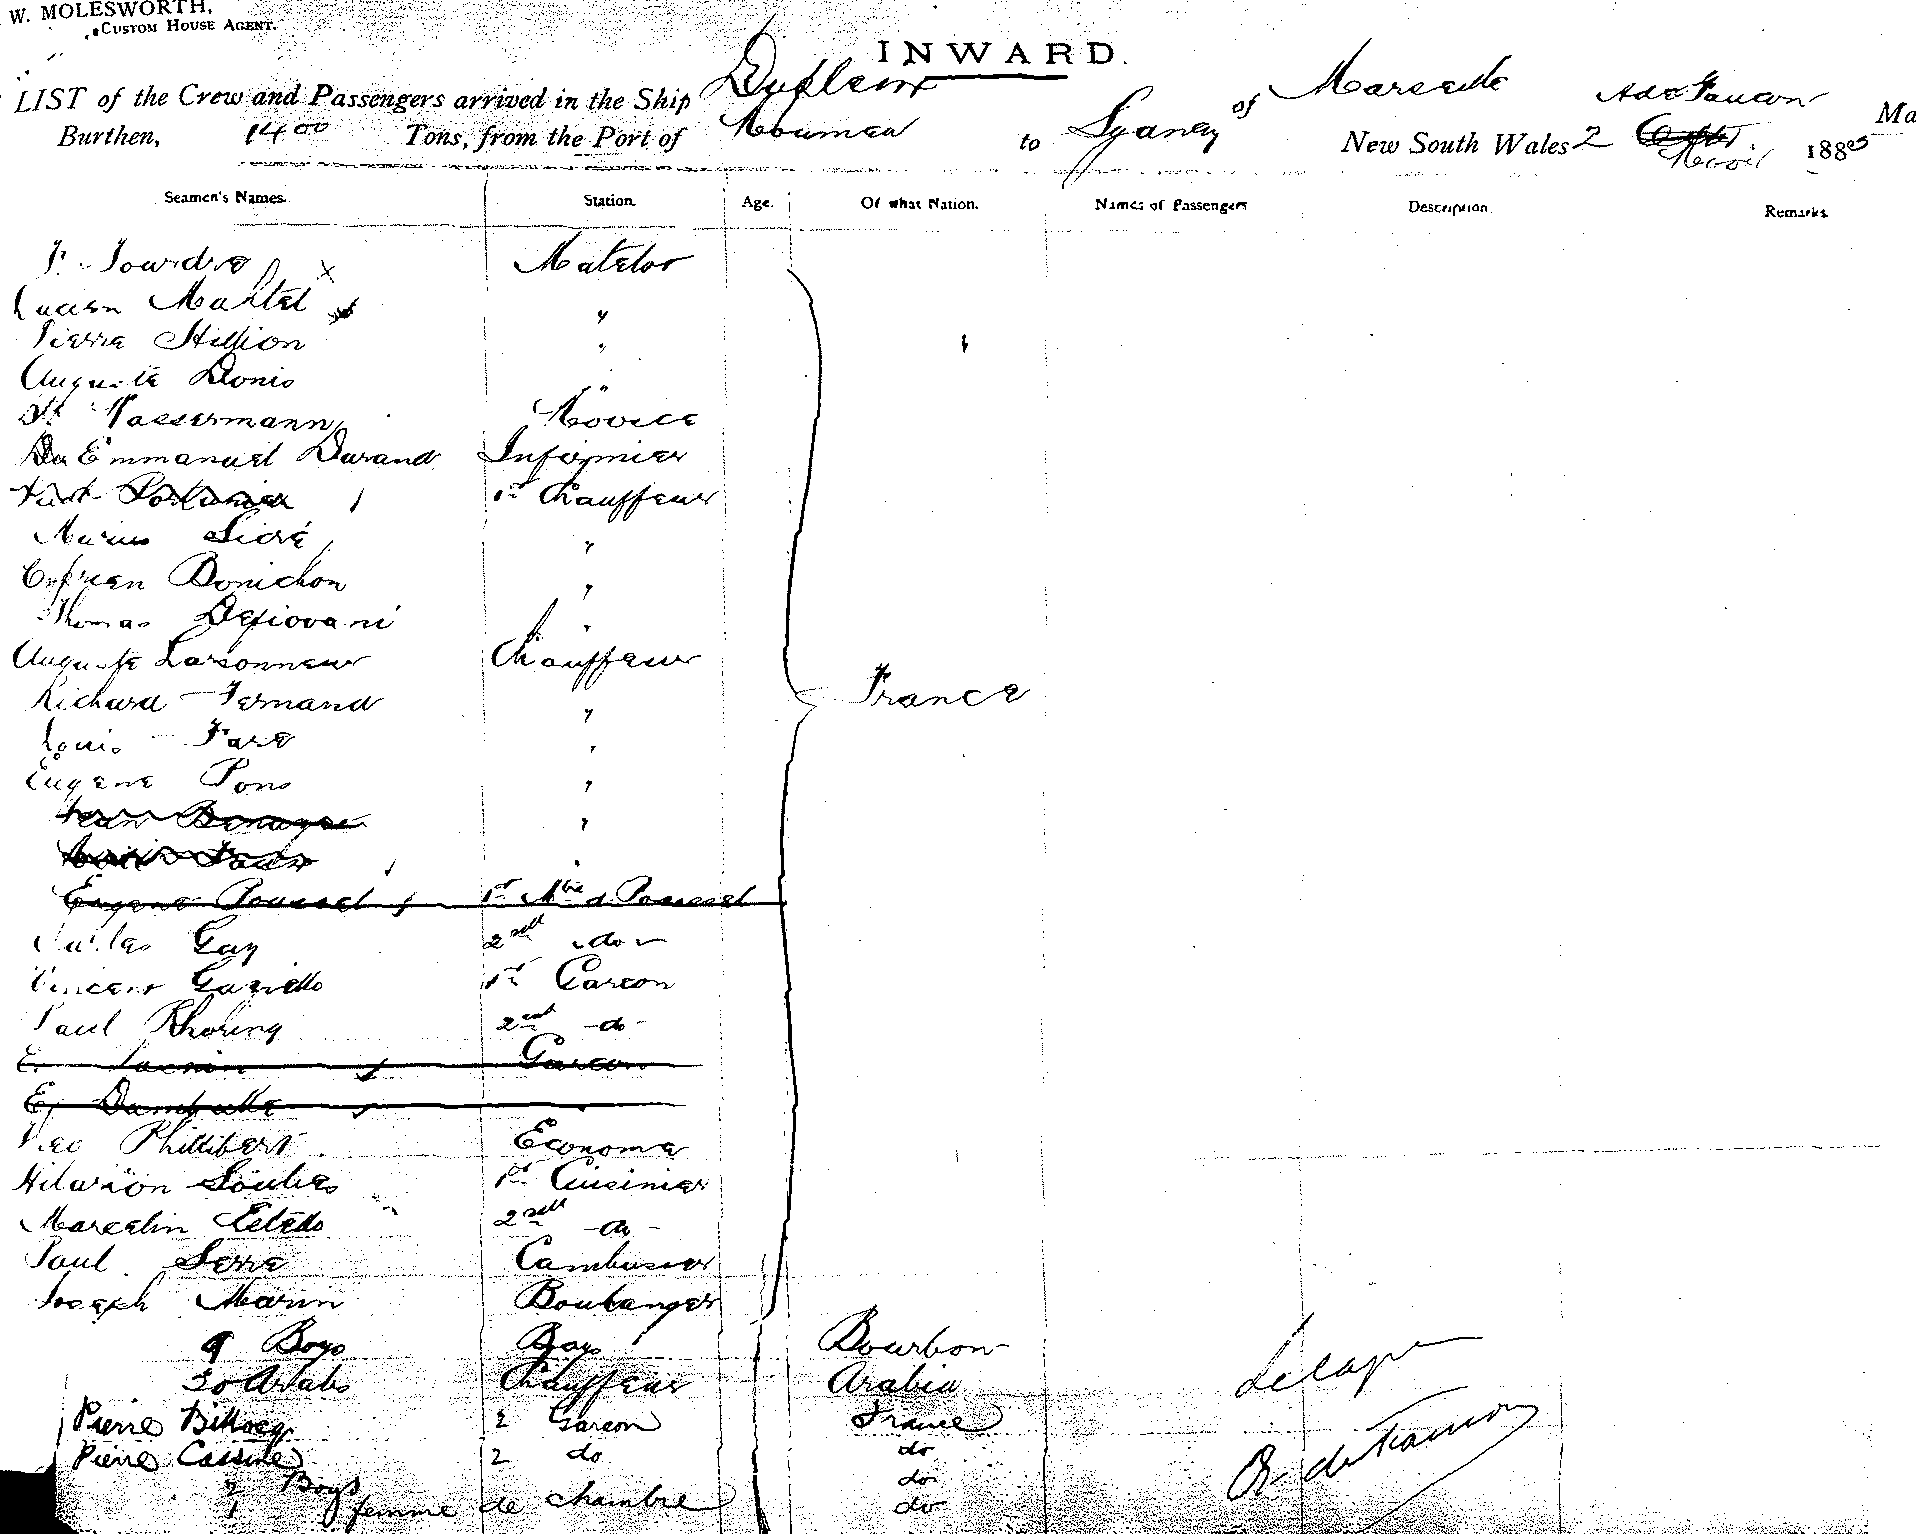 W. MOLESWORTH,
CUSTOM HOUSE AGENT.
INWARD.
LIST of the Crew and Passengers arrived in the Ship Dupleix of Marseille Ad de Faucon Ma
Burthen, 1400 Tons, from the Port of Noumea to Sydney New South Wales 2 188
Seamen's Names. Station. Age. Of what Nation. Names of Passengers Description Remarks.
Jourdre Matelot
Lucien Martel "
Pierre Hillion "
Auguste Donis "
Wassermann Novice
Emmanuel Durand Infirmier
1er Chauffeur
Marius Sicre "
Cyprien Bonichon "
Thomas Defiovani "
Auguste Larsonneur Chauffeur
Richard Fernand " France
Louis Fare "
Eugene Pons "
"
"
Eugene Poussel 1er Mtre d Poussel
Gay 2nd do
Vincent 1er Garcon
Paul Khoring 2nd do
E. Garcon
E.
Phillibert Econome
Hilarion Soulies 1er Cuisinier
Marcelin 2nd do
Paul Serre Cambusier
Joseph Marin Boulanger
9 Boys Boys Bourbon
30 Arabs Chauffeur Arabia
Pierre Billocq 2 Garcon France
Pierre Cassine 2 do do
2 Boys do
1 femme de chambre do